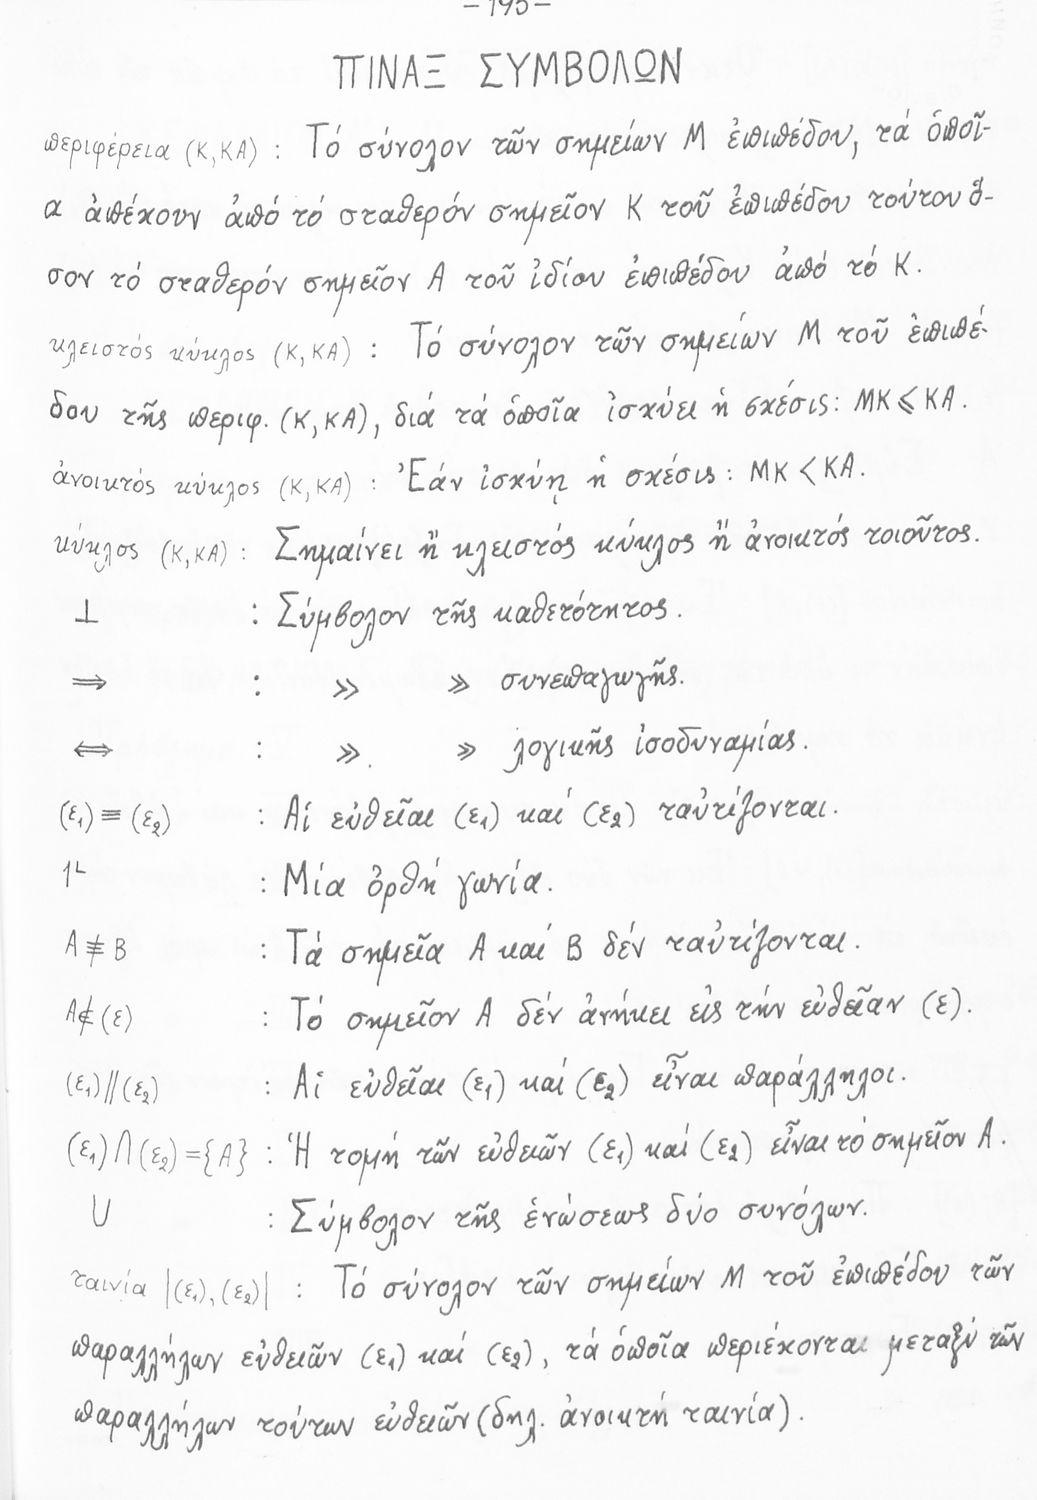 -195-
ΠΙΝΑΞ ΣΥΜΒΟΛΩΝ
περιφέρεια (Κ,ΚΑ) : Τό σύνολον τῶν σημείων Μ ἐπιπέδου, τά ὁποῖ-
α ἀπέχουν ἀπό τό σταθερόν σημεῖον Κ τοῦ ἐπιπέδου τούτου ὅ-
σον τό σταθερόν σημεῖον Α τοῦ ἰδίου ἐπιπέδου ἀπό τό Κ.
κλειστός κύκλος (Κ,ΚΑ) : Τό σύνολον τῶν σημείων Μ τοῦ ἐπιπέ-
δου τῆς περιφ. (Κ,ΚΑ), διά τά ὁποῖα ἰσχύει ἡ σχέσις: ΜΚ ⩽ ΚΑ.
ἀνοικτός κύκλος (Κ,ΚΑ) : Ἐάν ἰσχύῃ ἡ σχέσις: ΜΚ < ΚΑ.
κύκλος (Κ,ΚΑ) : Σημαίνει ἤ κλειστός κύκλος ἤ ἀνοικτός τοιοῦτος.
⊥ : Σύμβολον τῆς καθετότητος.
⇒ : » » συνεπαγωγῆς.
⇔ : » » λογικῆς ἰσοδυναμίας.
(ε₁) ≡ (ε₂) : Αἱ εὐθεῖαι (ε₁) καί (ε₂) ταὐτίζονται.
1ᴸ : Μία ὀρθή γωνία.
Α ≢ Β : Τά σημεῖα Α καί Β δέν ταὐτίζονται.
Α ∉ (ε) : Τό σημεῖον Α δέν ἀνήκει εἰς τήν εὐθεῖαν (ε).
(ε₁) // (ε₂) : Αἱ εὐθεῖαι (ε₁) καί (ε₂) εἶναι παράλληλοι.
(ε₁) ⋂ (ε₂) = {Α} : Ἡ τομή τῶν εὐθειῶν (ε₁) καί (ε₂) εἶναι τό σημεῖον Α.
⋃ : Σύμβολον τῆς ἑνώσεως δύο συνόλων.
ταινία |(ε₁),(ε₂)| : Τό σύνολον τῶν σημείων Μ τοῦ ἐπιπέδου τῶν
παραλλήλων εὐθειῶν (ε₁) καί (ε₂), τά ὁποῖα περιέχονται μεταξύ τῶν
παραλλήλων τούτων εὐθειῶν (δηλ. ἀνοικτή ταινία).